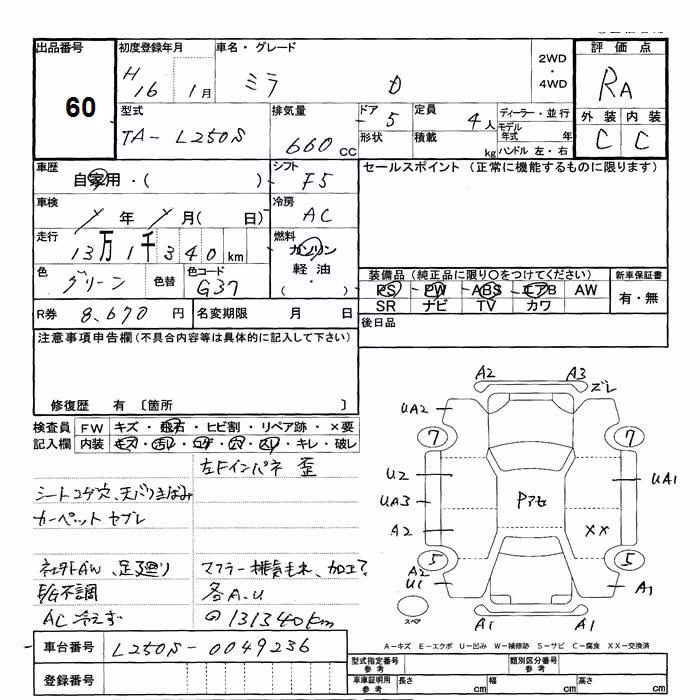 出品番号
60
初度登録年月
H 16 1月
車名・グレード
ミラ D
2WD
・
4WD
評価点
RA
外装 内装
C C
型式
TA- L250S
排気量
660 cc
ドア 5
形状
定員 4人
積載 kg
ディーラー・並行
モデル年式 年
ハンドル 左・右
車歴
自家用・( )
シフト
F5
セールスポイント (正常に機能するものに限ります)
車検
/年 /月( 日)
冷房
AC
走行
13万1千340km
燃料
ガソリン
軽油
( )・
色
グリーン
色替
色コード
G37
装備品(純正品に限り○をつけてください)
PS PW ABS エアB AW
SR ナビ TV カワ
新車保証書
有・無
R券 8,670 円
名変期限 月 日
後日品
注意事項申告欄(不具合内容等は具体的に記入して下さい)
修復歴 有〔箇所 〕
検査員
記入欄
FW キズ・飛石・ヒビ割・リペア跡・×要
内装 キズ・汚レ・コゲ・穴・スレ・キレ・破レ
左Fインパネ 歪
シートコゲ穴、天バリキばみ
カーペットセブレ
社外AW、足廻り
不調
AC 冷えず
マフラー排気もれ、加工?
各A.U
131340km
A2 A3
ズレ
UA2
7 7
U2
UA1
UA3
Pアセ
A2
XX
5 5
A2
U1
A1
スペア
A1 A1
A-キズ E-エクボ U-凹み W-補修跡 S-サビ C-腐食 XX-交換済
車台番号 L250S-0049236
登録番号
型式指定番号
参考
類別区分番号
参考
車庫証明用
参考
長さ cm 幅 cm 高さ cm